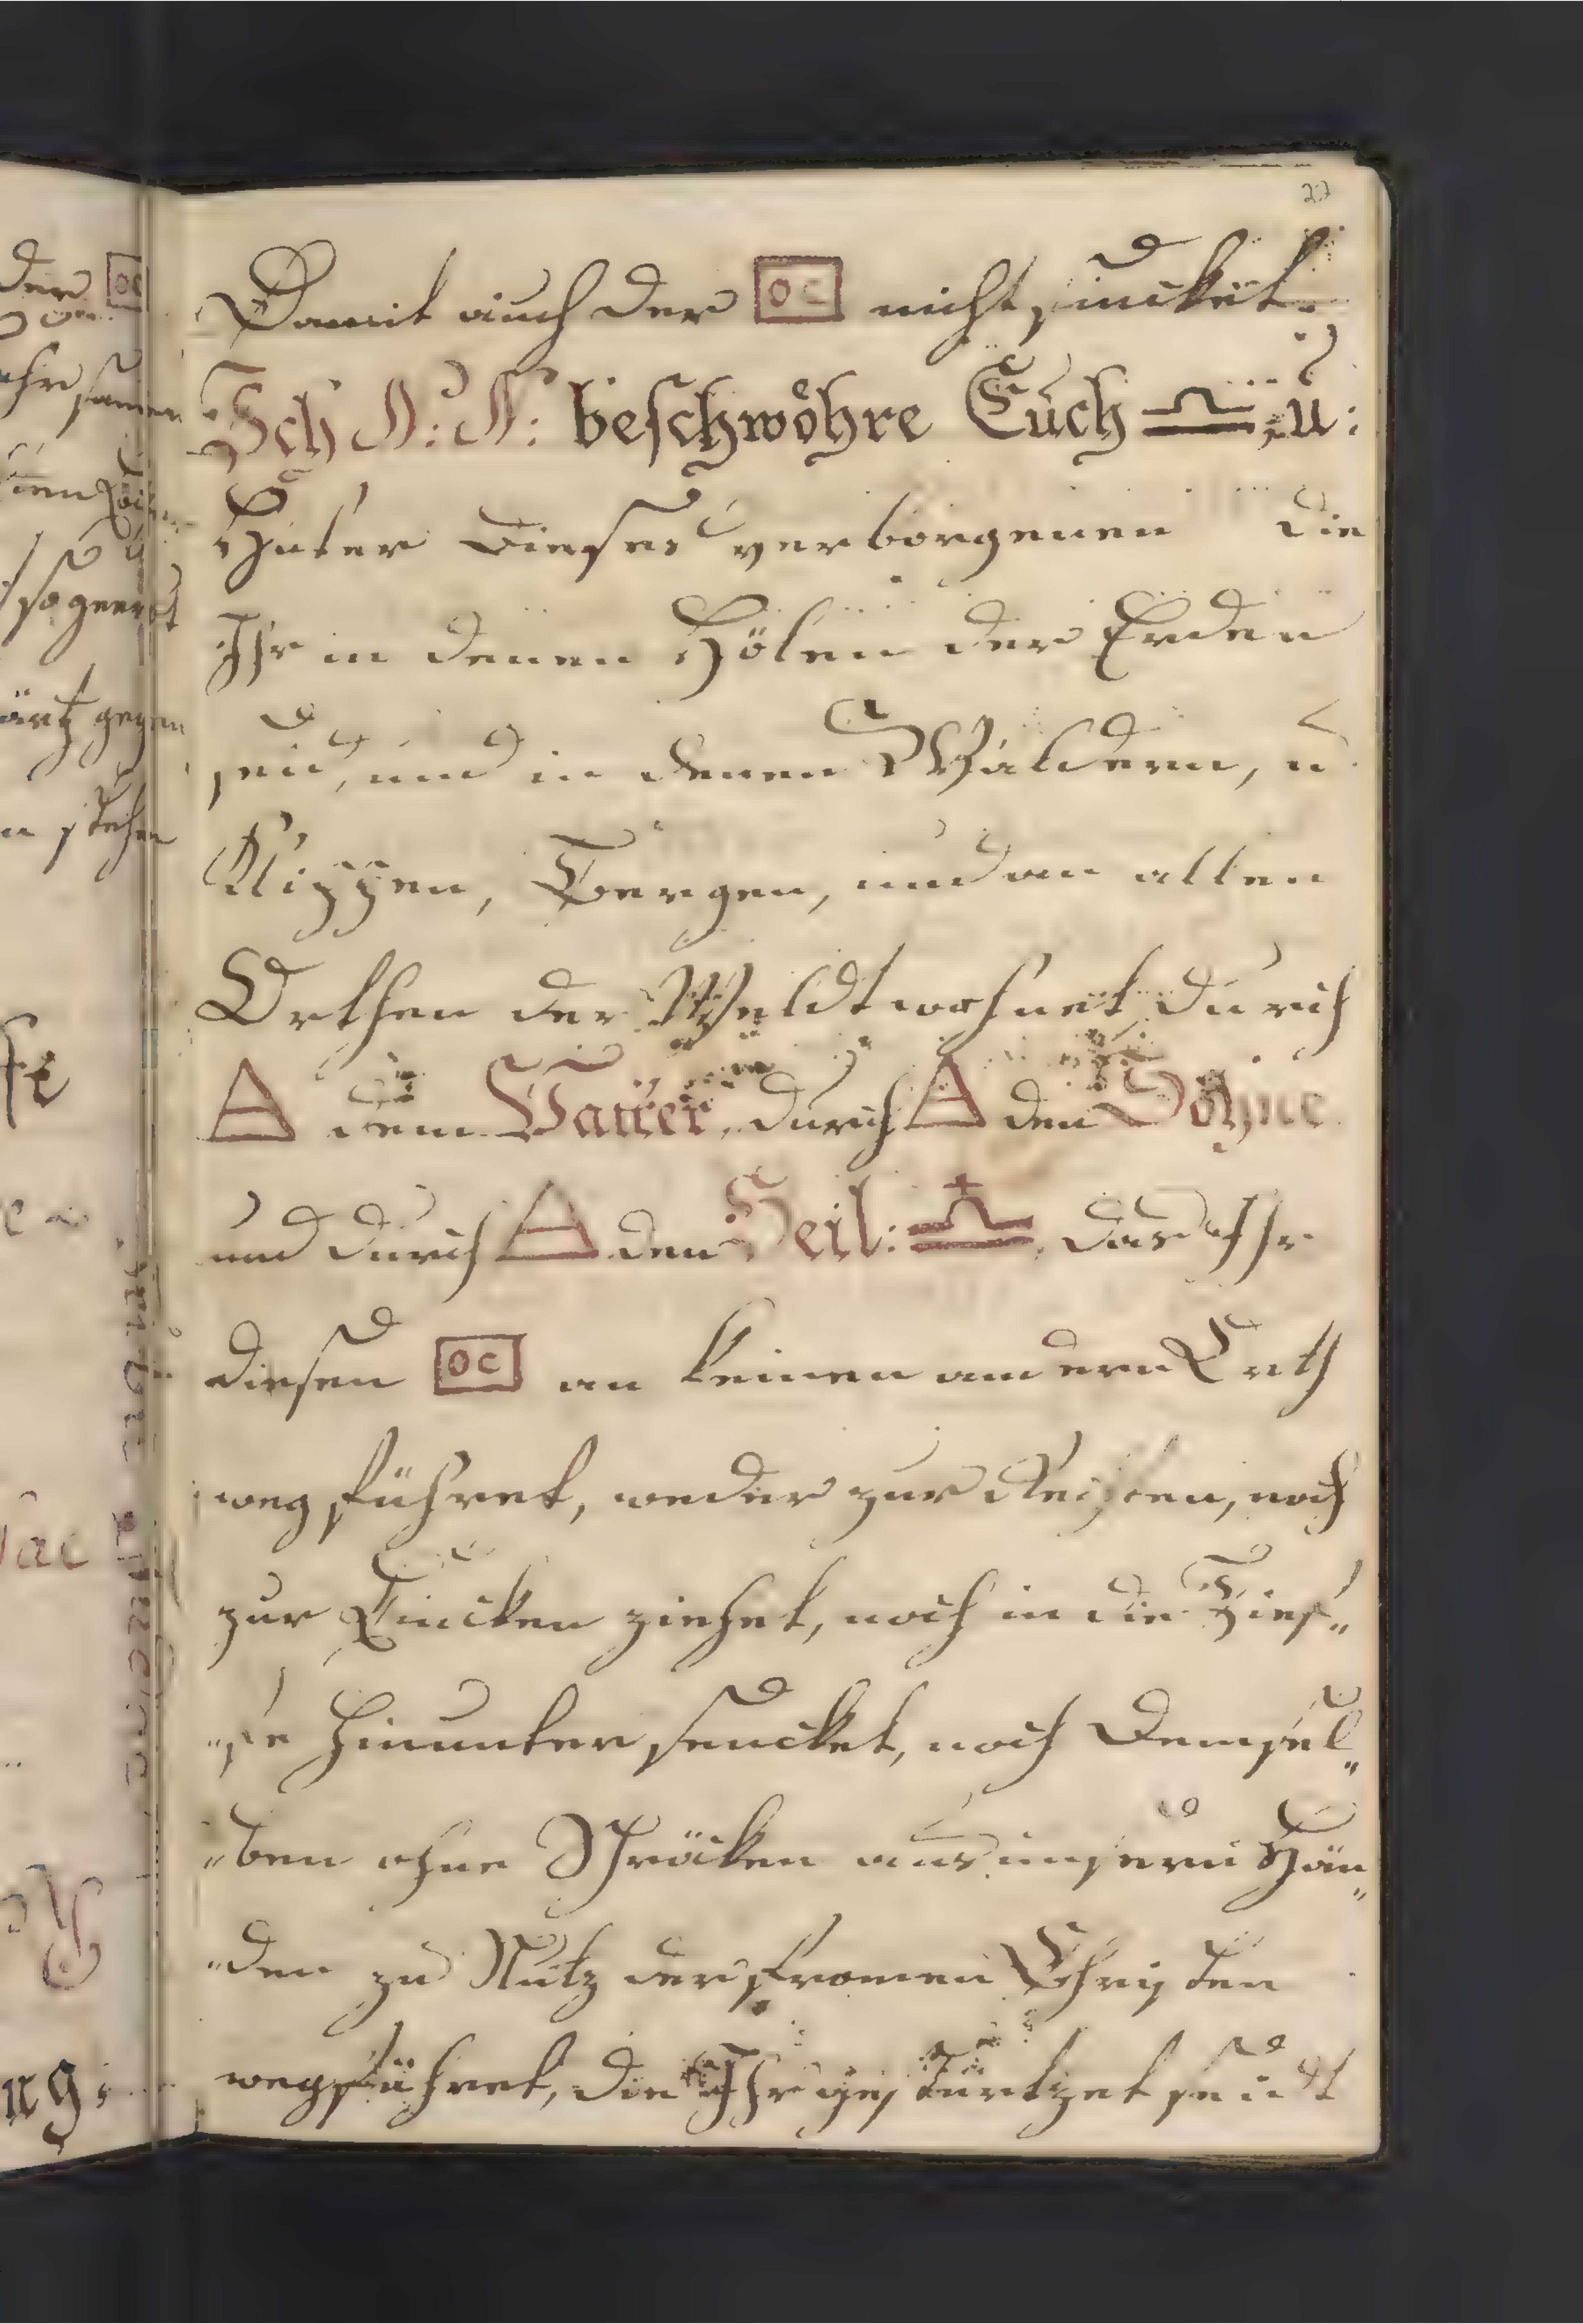 27
Damit auch der OC nicht sincket.
Ich N: N: beschwöhre Euch ♎ u:
Hüter dieses verborgenen die
Ihr in denen Hölen der Erden
seid, und in denen Wäldern, u
Klippen, Bergen, und an allen
Orthen der Weldt wohnet durch
dem Vatter, durch den Sohne
und durch den Heil: das Ihr
diesen OC an keinen andern Orth
weg führet, weder zur Rechten, noch
zur Lincken ziehet, noch in die Tief„
„fe hinunter sencket, noch demsel„
„ben ohne Schräcken aus unsern Hän„
„den zu Nutz der fromen Christen
wegführet, die Ihr gestürtzet seidt